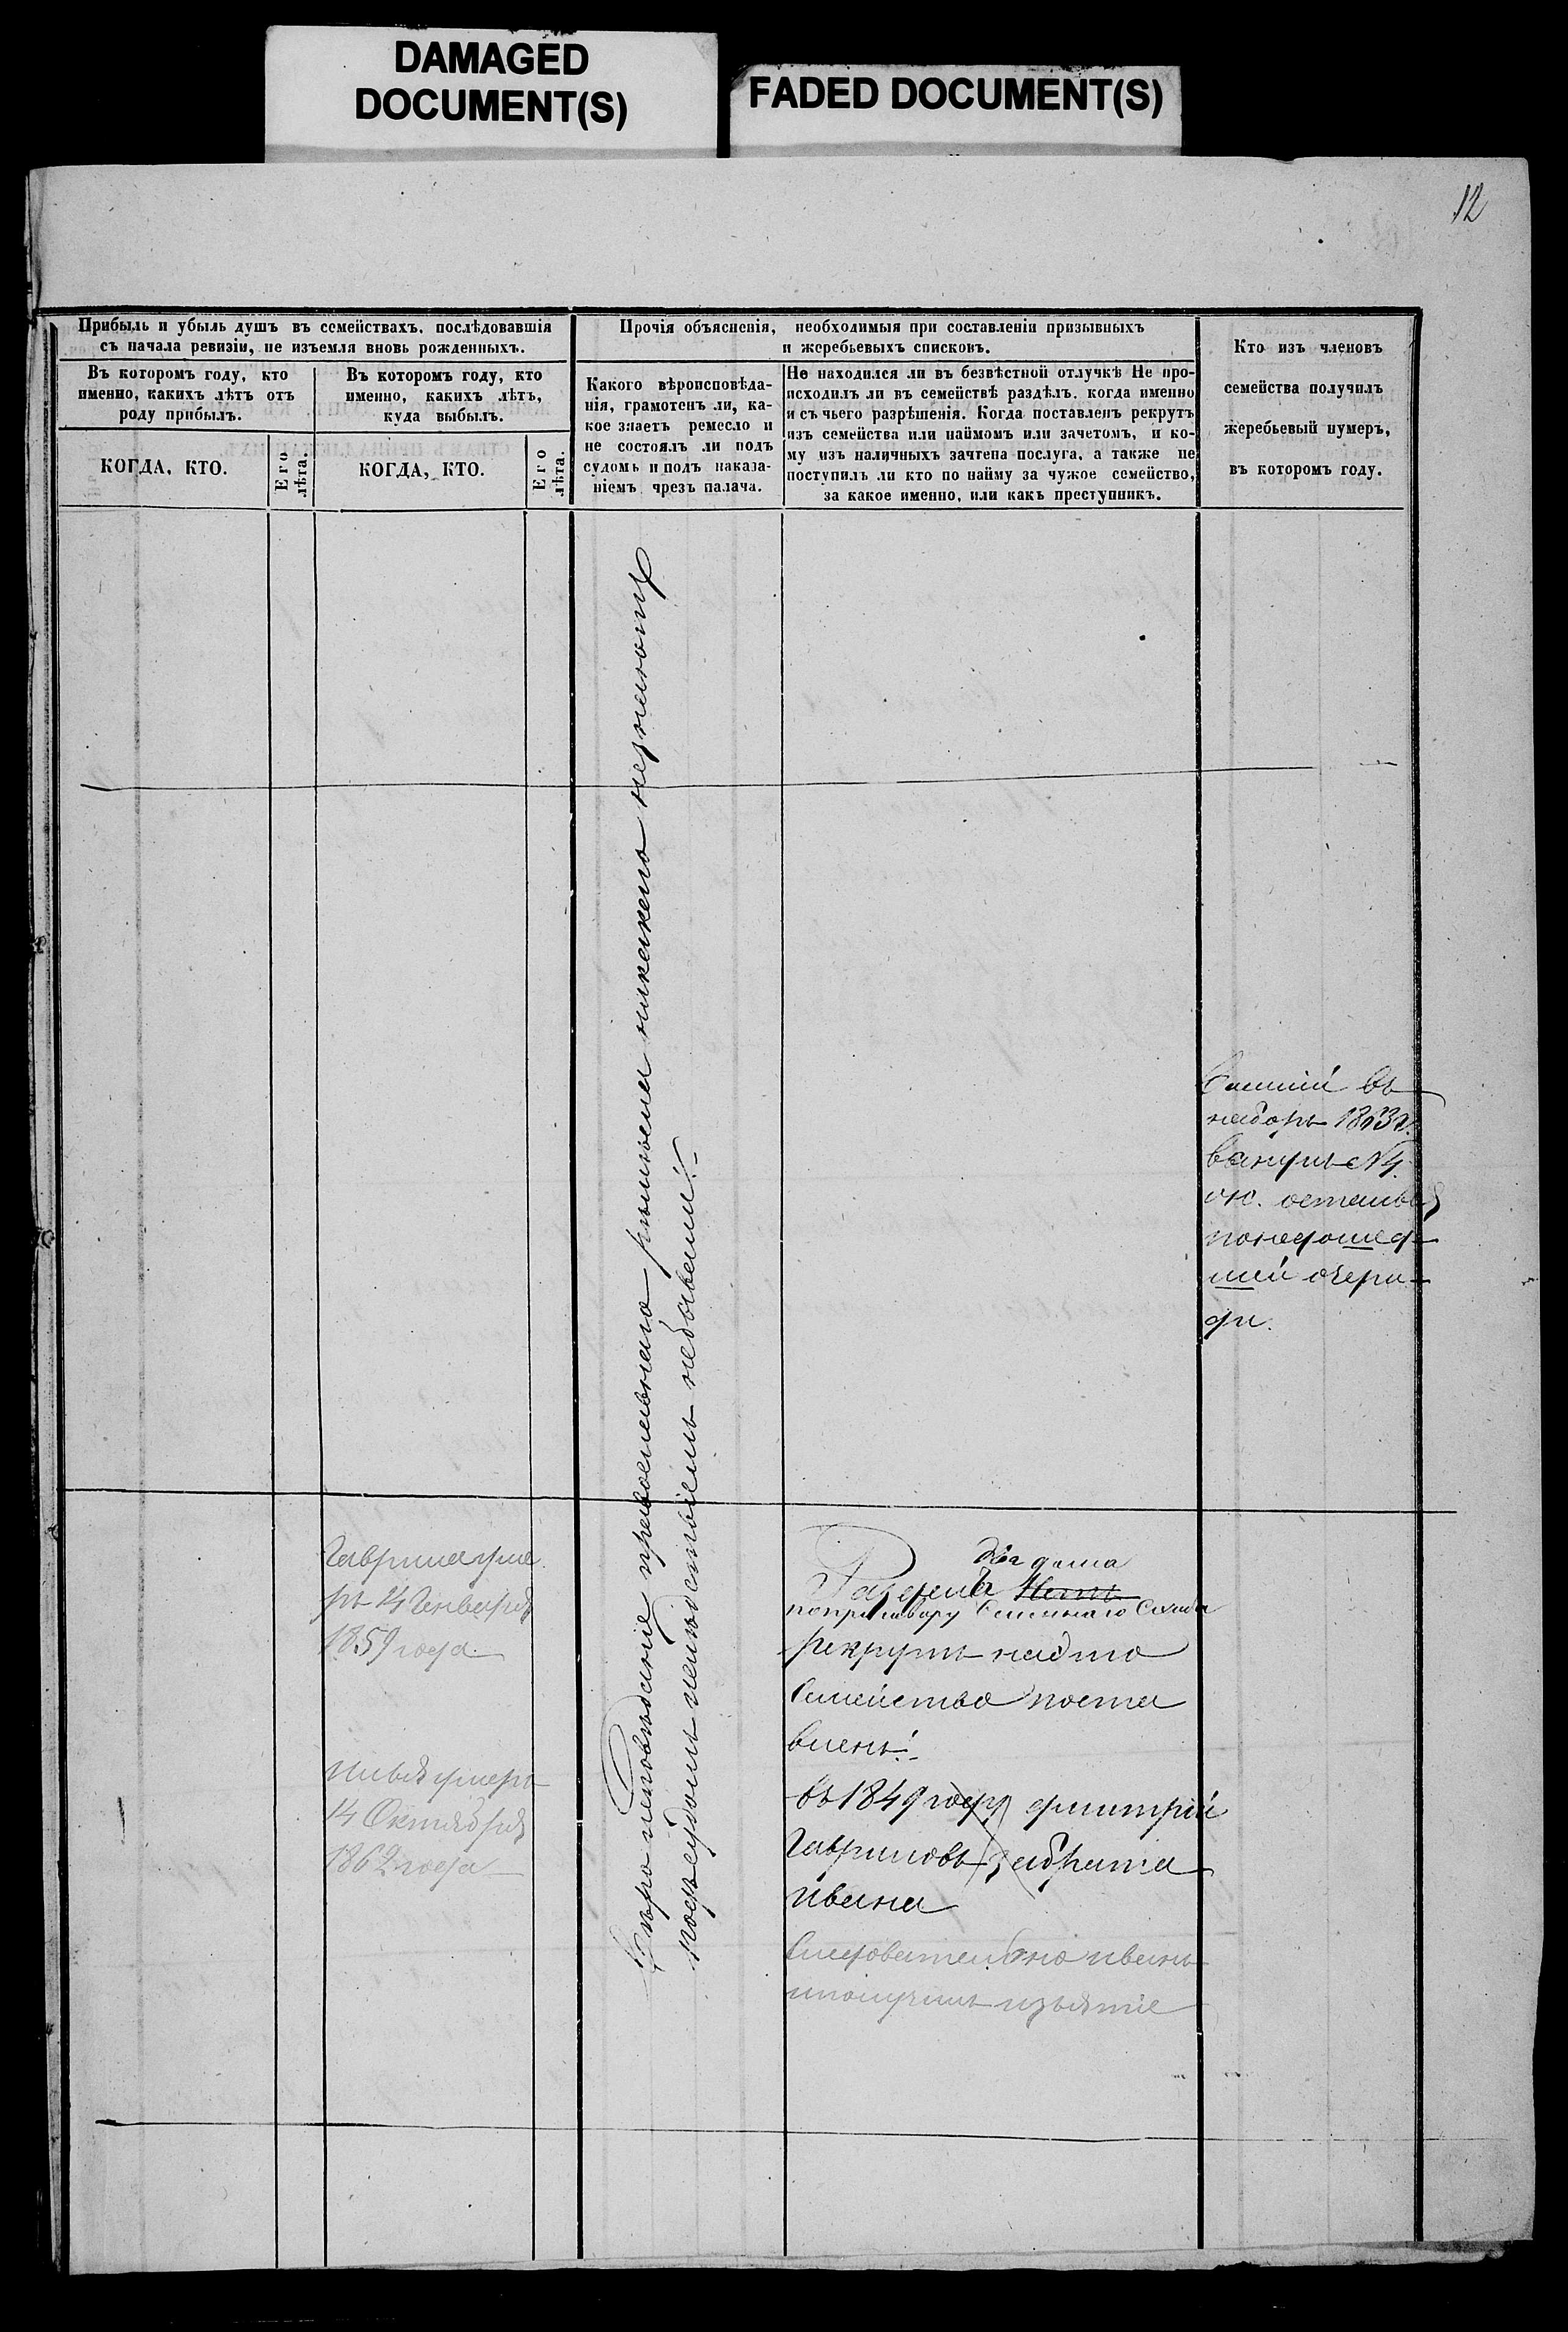 DAMAGED
DOCUMENT(S)
FADED DOCUMENT(S)
12
Прибыль и убыль душъ въ семействахъ, послѣдовавшія
съ начала ревизіи, не изъемля вновь рожденныхъ.
Въ которомъ году, кто
именно, какихъ лѣтъ отъ
роду прибылъ.
Въ которомъ году, кто
именно, какихъ лѣтъ,
куда выбылъ.
КОГДА, КТО.
Его
лѣта.
КОГДА, КТО.
Его
лѣта.
Прочія объясненія, необходимыя при составленіи призывныхъ
и жеребьевыхъ списковъ.
Какого вѣроисповѣда-
нія, грамотенъ ли, ка-
кое знаетъ ремесло и
не состоялъ ли подъ
судомъ и подъ наказа-
ніемъ чрезъ палача.
Не находился ли въ безвѣстной отлучкѣ Не про-
исходилъ ли въ семействѣ раздѣлъ, когда именно
и съ чьего разрѣшенія. Когда поставленъ рекрутъ
изъ семейства или наймомъ или зачетомъ, и ко-
му изъ наличныхъ зачтена послуга, а также не
поступилъ ли кто по найму за чужое семейство,
за какое именно, или какъ преступникъ.
Кто изъ членовъ
семейства получилъ
жеребьевый нумеръ,
въ которомъ году.
Вѣро исповѣданіе православнаго никакого незнаютъ
подъ судомъ небывали
въ
наборъ 1863 г.
№ 4
остался
понедошед
шей очере
ди.
Гаврила уме
ръ 14 Генваря
1859 года
Илья умеръ
14 Октября
1862 года
два дома
Разделъ
по приговору Сельнаго Схода
рекрутъ
Семейства поста
вленъ
въ 1849 году дмитрій
Гавриловъ за брата
ивана
Следовательно иванъ
изъятіе